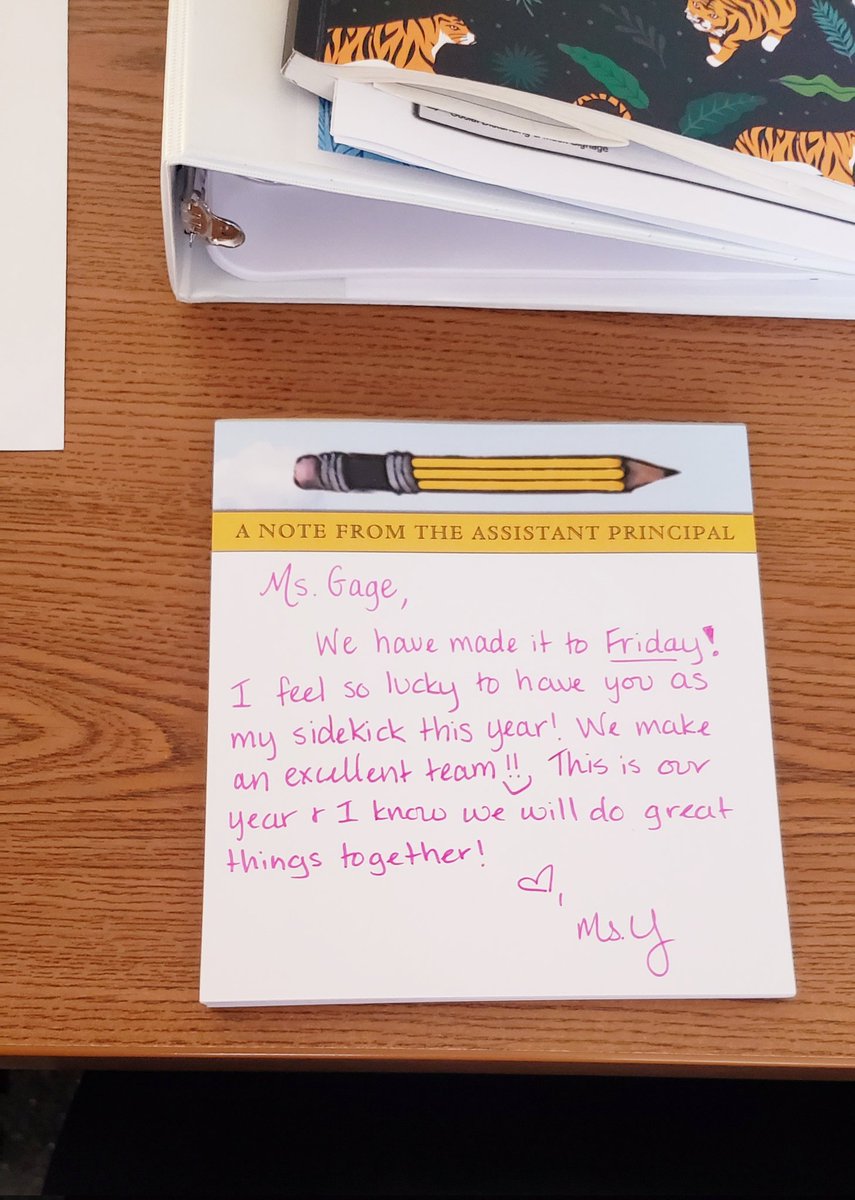 A NOTE FROM THE ASSISTANT PRINCIPAL
Ms. Gage,
We have made it to Friday!
I feel so lucky to have you as
my sidekick this year! We make
an excellent team!! This is our
year & I know we will do great
things together!
♡,
Ms. Y